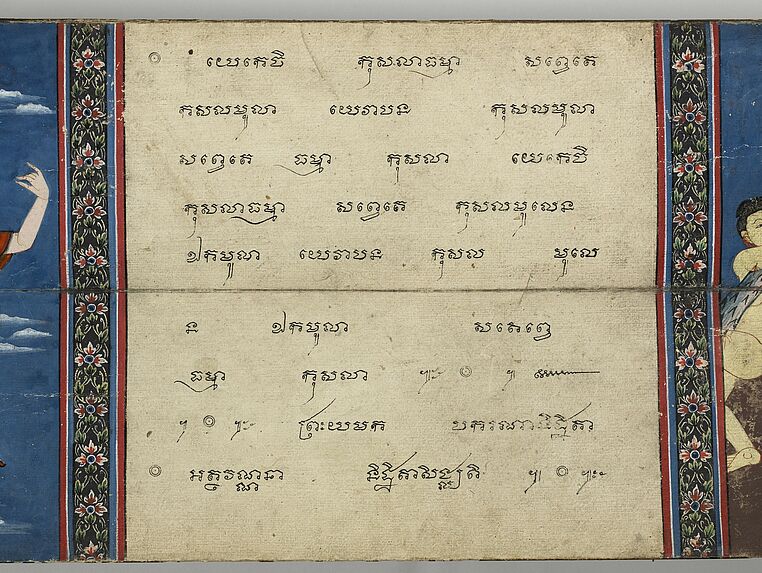 ๏ យេកេចិ កុសលាធម្មា សព្វេតេ
កុសលមូលា យេវាបន កុសលមូលា
សព្វេតេ ធម្មា កុសលា យេកេចិ
កុសលាធម្មា សព្វេតេ កុសលមូលេន
ឯកមូលា យេវាបន កុសល មូលេ
ន ឯកមូលា សព្វេតេ
ធម្មា កុសលា ๏
๏ ព្រះយមក បករណានិដ្ឋិតា
๏ និដ្ឋិតា ๏